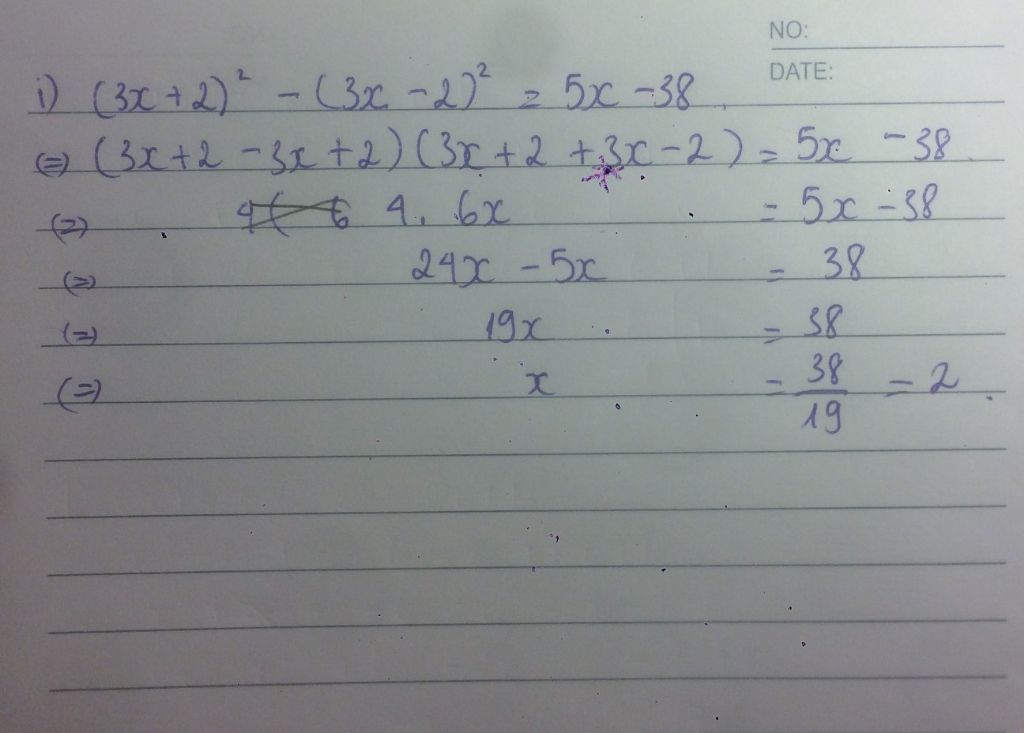 NO:
DATE:
i) (3x+2)² - (3x-2)² = 5x-38
(=) (3x+2-3x+2)(3x+2+3x-2) = 5x-38
(=) 4. 6x = 5x-38
(=) 24x - 5x = 38
(=) 19x = 38
(=) x = 38/19 = 2.